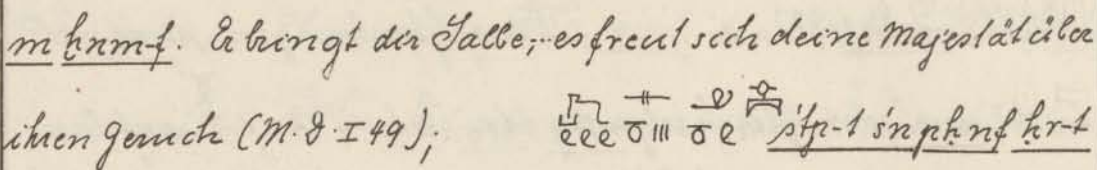 m ḫnm-f. Er bringt dir Salbe; es freut sich deine Majestät über
ihren Geruch (M. D. I 49); śtp-t śn pḥnf ḥr-t